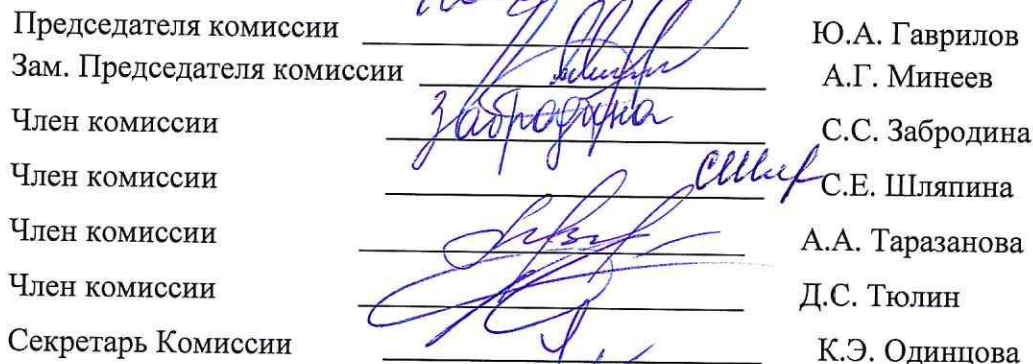 Председателя комиссии Ю.А. Гаврилов
Зам. Председателя комиссии А.Г. Минеев
Член комиссии Забродина С.С. Забродина
Член комиссии С.Е. Шляпина
Член комиссии А.А. Таразанова
Член комиссии Д.С. Тюлин
Секретарь Комиссии К.Э. Одинцова